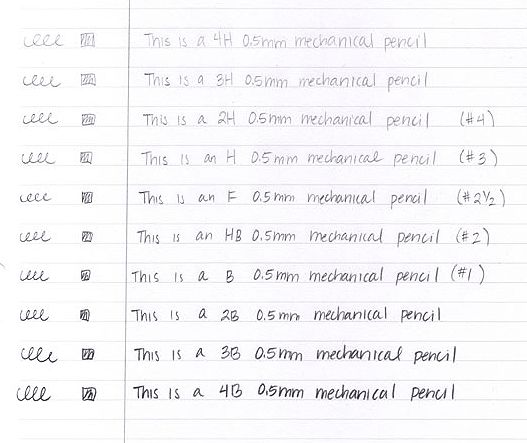 eeee This is a 4H 0.5mm mechanical pencil
eeee This is a 3H 0.5mm mechanical pencil
eeee This is a 2H 0.5mm mechanical pencil (#4)
eeee This is an H 0.5mm mechanical pencil (#3)
eeee This is an F 0.5mm mechanical pencil (#2½)
eeee This is an HB 0.5mm mechanical pencil (#2)
eeee This is a B 0.5mm mechanical pencil (#1)
eeee This is a 2B 0.5mm mechanical pencil
eeee This is a 3B 0.5mm mechanical pencil
eeee This is a 4B 0.5mm mechanical pencil